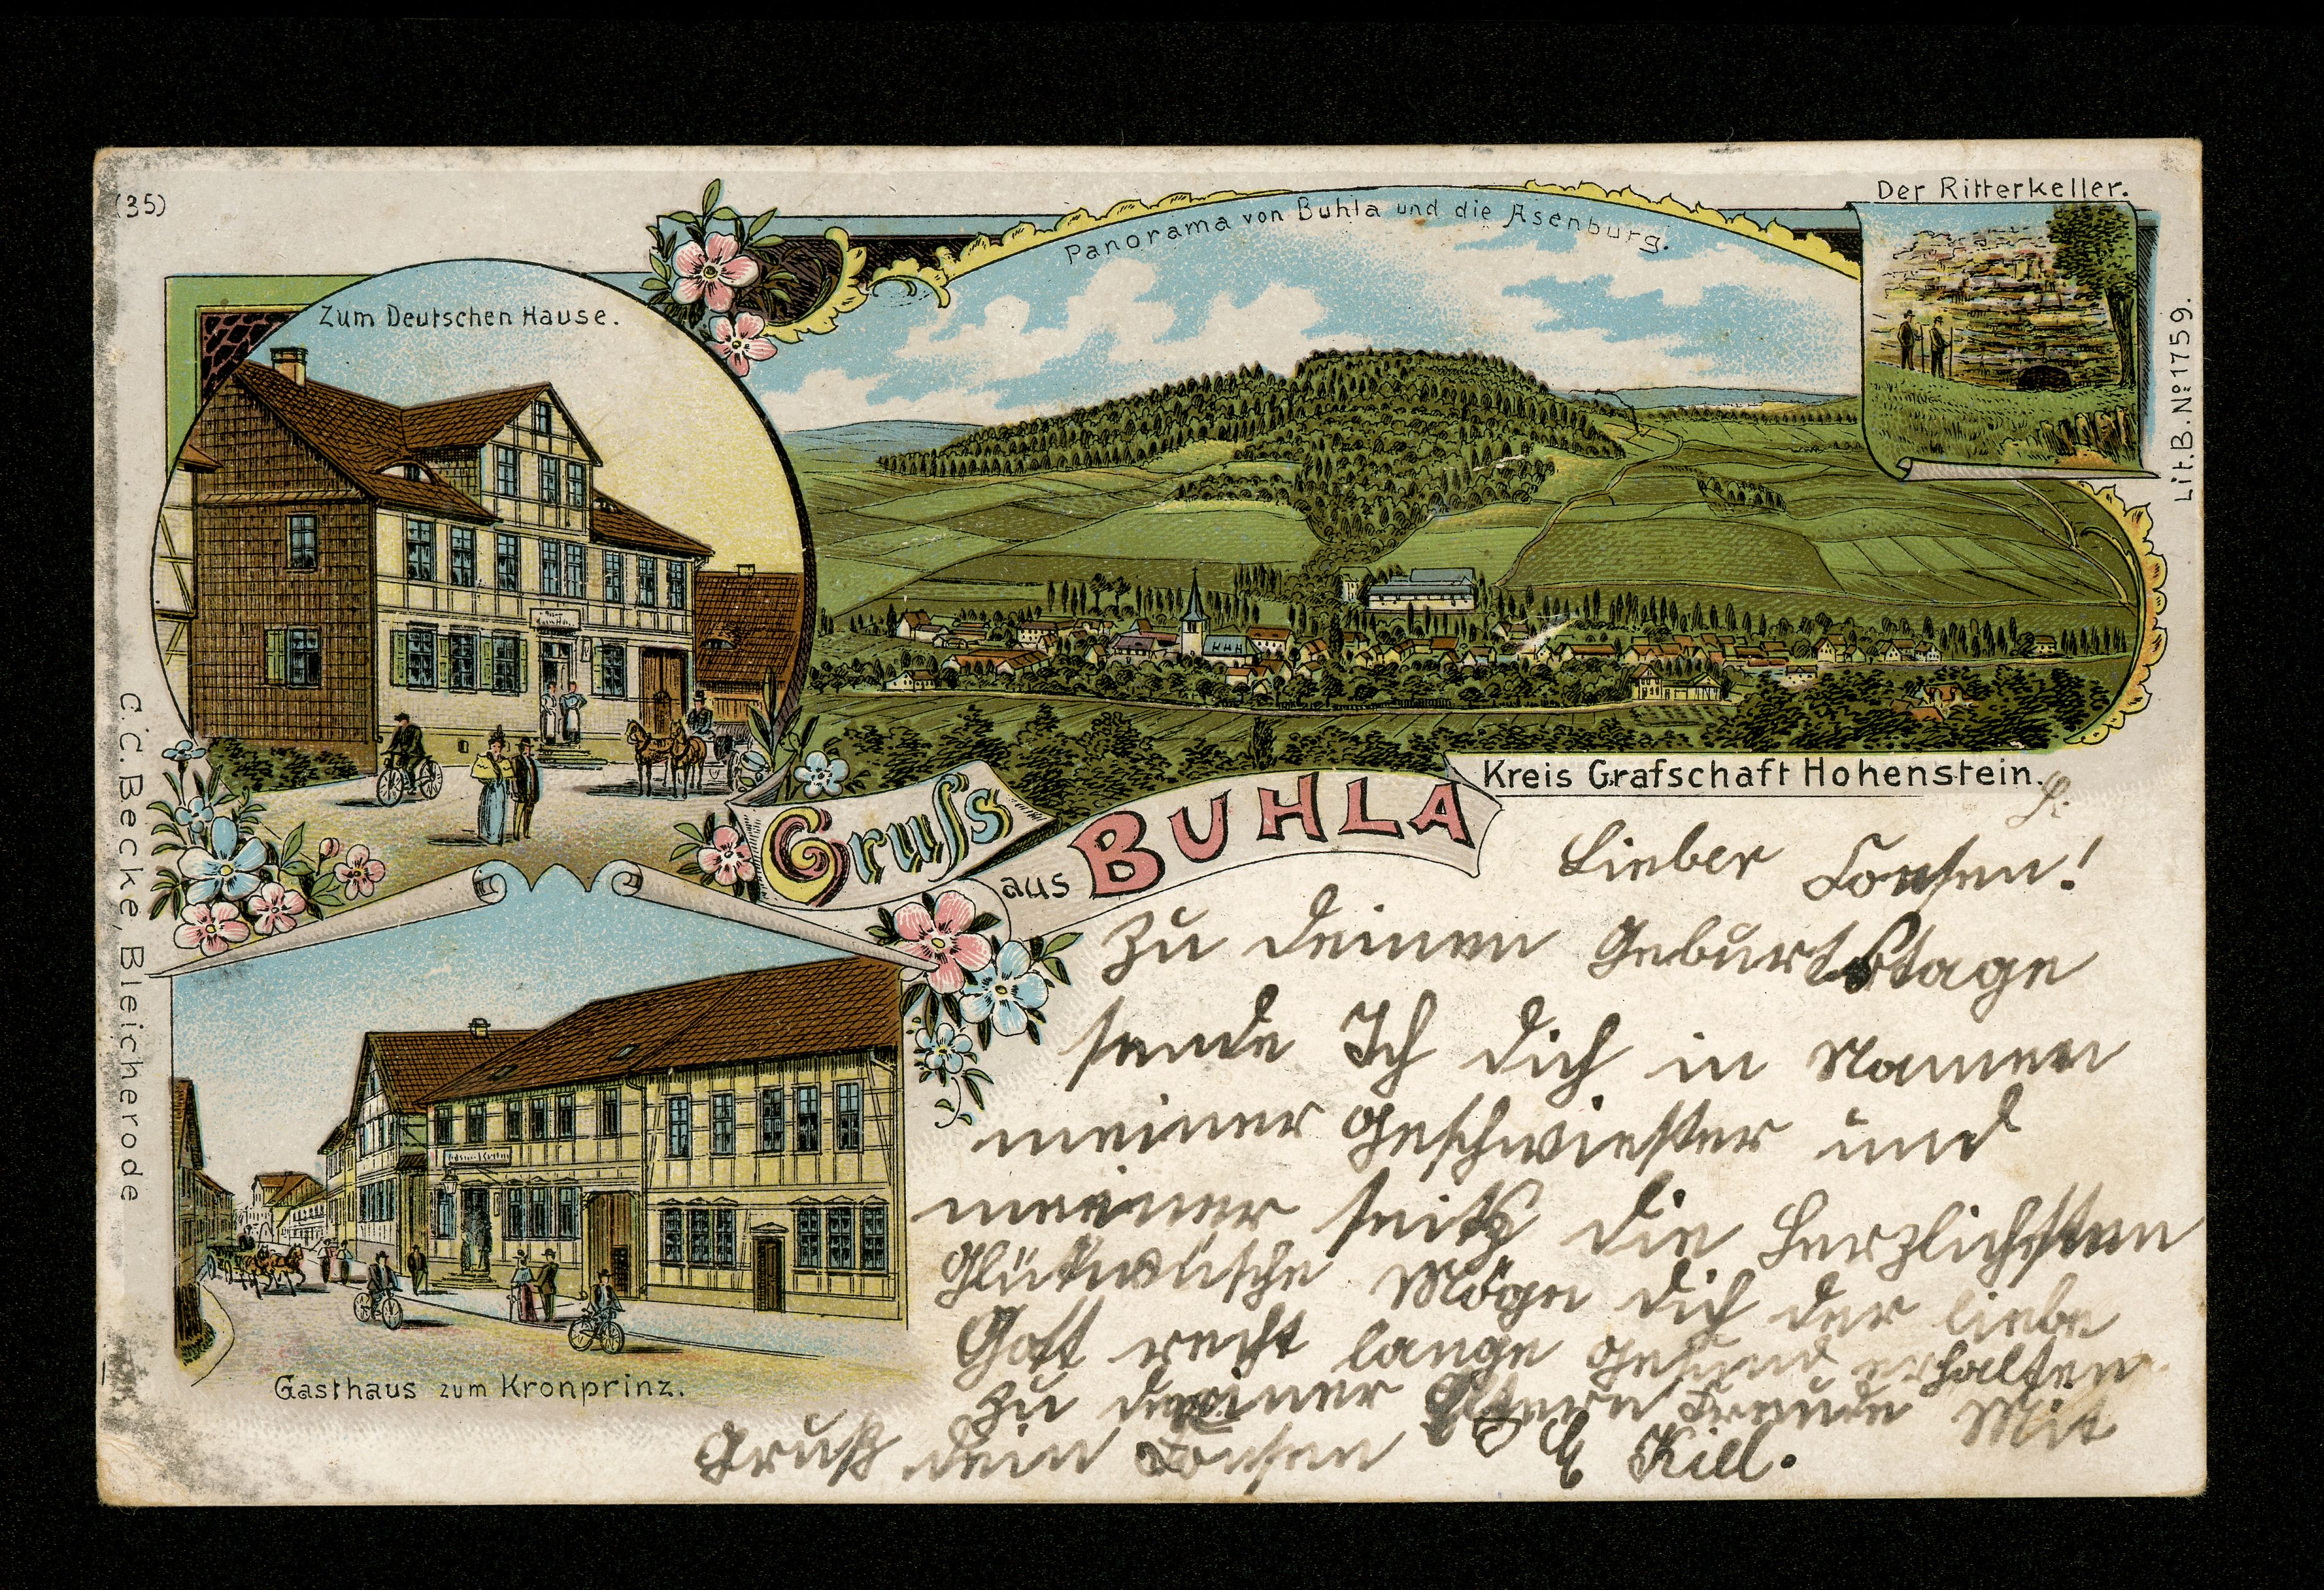 (35)
Zum Deutschen Hause.
Panorama von Buhla und die Asenburg.
Der Ritterkeller.
Lit. B. No 1759.
C. C. Becke, Bleicherode
Kreis Grafschaft Hohenstein.
Gruſs
aus BUHLA
Gasthaus zum Kronprinz.
Lieber
Zu deinen Geburtstage
sende Ich dich in Namen
meiner Geschwiester und
meiner seitz die Herzlichsten
Glükwüsche Möge dich der liebe
Gott recht lange gesund erhalten
zu deiner Eltern Freude Mit
Gruß dein Kill.